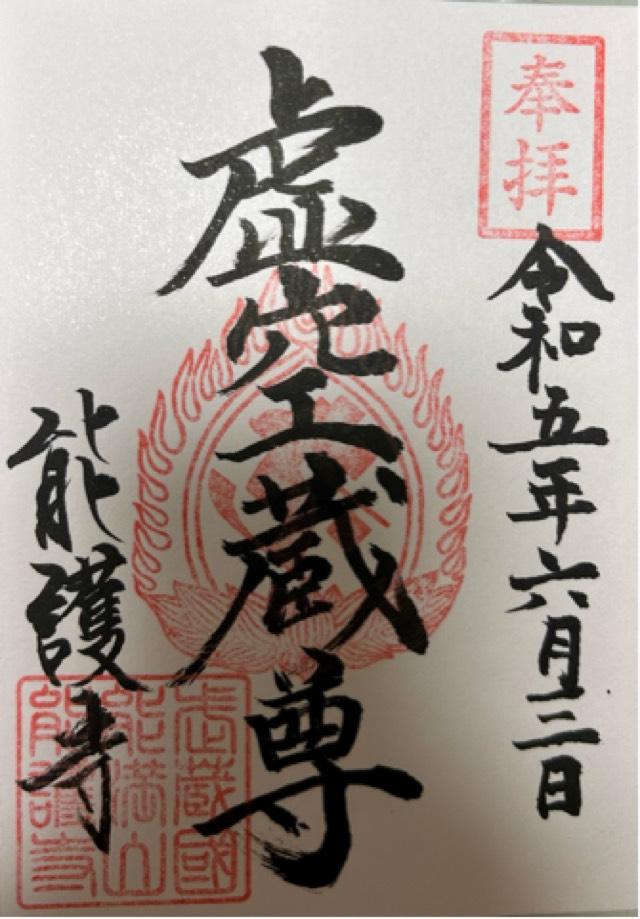 奉拝
令和五年六月三日
虚空蔵尊
能護寺
武蔵國
能満山
能護寺